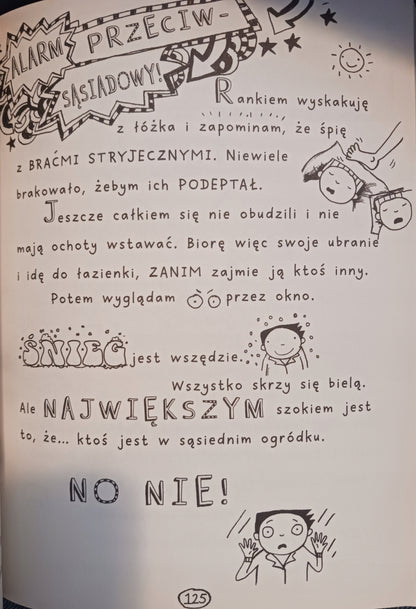 ALARM PRZECIW-
SĄSIADOWY!
Rankiem wyskakuję
z łóżka i zapominam, że śpię
z BRAĆMI STRYJECZNYMI. Niewiele
brakowało, żebym ich PODEPTAŁ.
Jeszcze całkiem się nie obudzili i nie
mają ochoty wstawać. Biorę więc swoje ubranie
i idę do łazienki, ZANIM zajmie ją ktoś inny.
Potem wyglądam przez okno.
ŚNIEG jest wszędzie.
Wszystko skrzy się bielą.
Ale NAJWIĘKSZYM szokiem jest
to, że... ktoś jest w sąsiednim ogródku.
NO NIE!
125